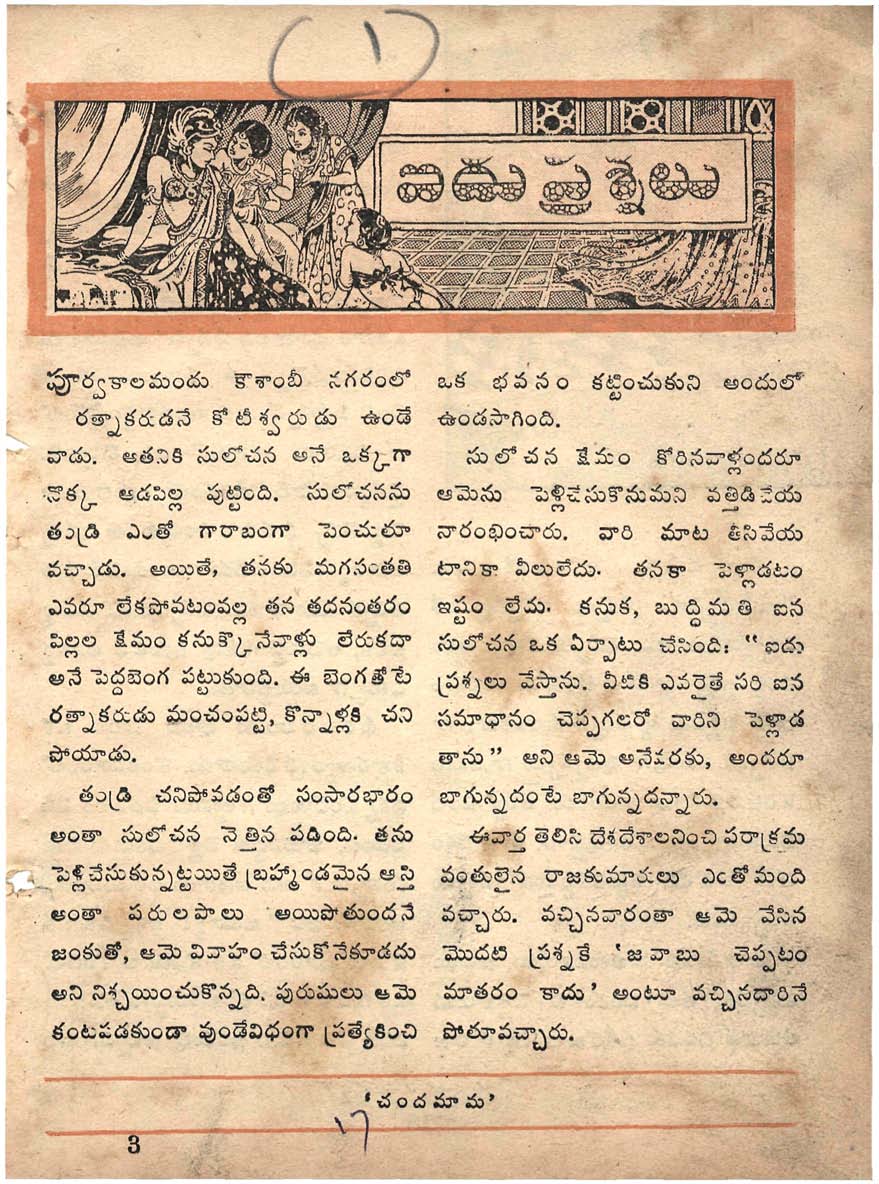 1
ఐదు ప్రశ్నలు
పూర్వకాలమందు కౌశాంబీ నగరంలో
రత్నాకరుడనే కోటీశ్వరుడు ఉండే
వాడు. అతనికి సులోచన అనే ఒక్కగా
నొక్క ఆడపిల్ల పుట్టింది. సులోచనను
తండ్రి ఎంతో గారాబంగా పెంచుతూ
వచ్చాడు. అయితే, తనకు మగసంతతి
ఎవరూ లేకపోవటంవల్ల తన తదనంతరం
పిల్లల క్షేమం కనుక్కొనేవాళ్లు లేరుకదా
అనే పెద్దబెంగ పట్టుకుంది. ఈ బెంగతోటే
రత్నాకరుడు మంచంపట్టి, కొన్నాళ్లకి చని
పోయాడు.
తండ్రి చనిపోవడంతో సంసారభారం
అంతా సులోచన నెత్తిన పడింది. తను
పెళ్లిచేసుకున్నట్టయితే బ్రహ్మాండమైన ఆస్తి
అంతా పరులపాలు అయిపోతుందనే
జంకుతో, ఆమె వివాహం చేసుకోనేకూడదు
అని నిశ్చయించుకొన్నది. పురుషులు ఆమె
కంటపడకుండా వుండేవిధంగా ప్రత్యేకించి
ఒక భవనం కట్టించుకుని అందులో
ఉండసాగింది.
సులోచన క్షేమం కోరినవాళ్లందరూ
ఆమెను పెళ్లిచేసుకొనుమని వత్తిడిచేయ
నారంభించారు. వారి మాట తీసివేయ
టానికా వీలులేదు. తనకా పెళ్లాడటం
ఇష్టం లేదు. కనుక, బుద్ధిమతి ఐన
సులోచన ఒక ఏర్పాటు చేసింది: "ఐదు
ప్రశ్నలు వేస్తాను. వీటికి ఎవరైతే సరి ఐన
సమాధానం చెప్పగలరో వారిని పెళ్లాడ
తాను" అని ఆమె అనేవరకు, అందరూ
బాగున్నదంటే బాగున్నదన్నారు.
ఈవార్త తెలిసి దేశదేశాలనించి పరాక్రమ
వంతులైన రాజకుమారులు ఎంతోమంది
వచ్చారు. వచ్చినవారంతా ఆమె వేసిన
మొదటి ప్రశ్నకే 'జవాబు చెప్పటం
మాతరం కాదు' అంటూ వచ్చినదారినే
పోతూవచ్చారు.
'చందమామ'
17
3